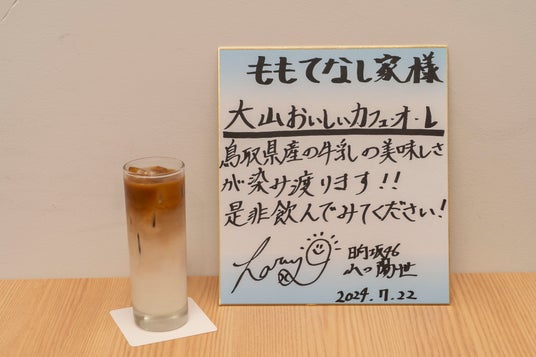 ももてなし家様
大山おいしいカフェ・オ・レ
鳥取県産の牛乳の美味しさ
が染み渡ります!!
是非飲んでみてください!
日向坂46
山口陽世
2024.7.22